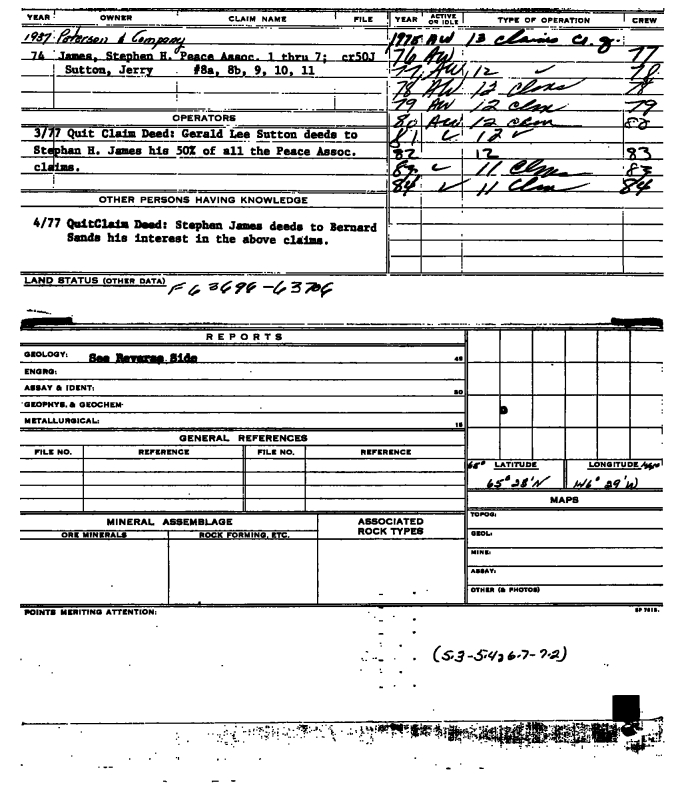 YEAR OWNER CLAIM NAME FILE YEAR ACTIVE OR IDLE TYPE OF OPERATION CREW
1937 Peterson & Company 1975 AW 13 claims
74 James, Stephen H. Peace Assoc. 1 thru 7; cr50J 76 AW 77
Sutton, Jerry #8a, 8b, 9, 10, 11 77 AW 12 ✓ 78
78 AW 12 clms
79 AW 12 clm 79
OPERATORS 80 AW 12 clm
3/77 Quit Claim Deed: Gerald Lee Sutton deeds to 81 ✓ 12 ✓
Stephen H. James his 50% of all the Peace Assoc. 82 12 83
claims. 83 ✓ 11 clm 83
84 ✓ 11 clm 84
OTHER PERSONS HAVING KNOWLEDGE
4/77 QuitClaim Deed: Stephen James deeds to Bernard
Sands his interest in the above claims.
LAND STATUS (OTHER DATA) F63696-63706
REPORTS
GEOLOGY: See Reverse Side 45
ENGRG:
ASSAY & IDENT: 50
GEOPHYS. & GEOCHEM:
METALLURGICAL: 15
GENERAL REFERENCES
FILE NO. REFERENCE FILE NO. REFERENCE
65° LATITUDE LONGITUDE
65°28'N 146°29'W
MAPS
MINERAL ASSEMBLAGE ASSOCIATED ROCK TYPES TOPOG:
ORE MINERALS ROCK FORMING, ETC. GEOL:
MINE:
ASSAY:
OTHER (& PHOTOS)
POINTS MERITING ATTENTION:
(5.3-5.4; 6.7-7.2)